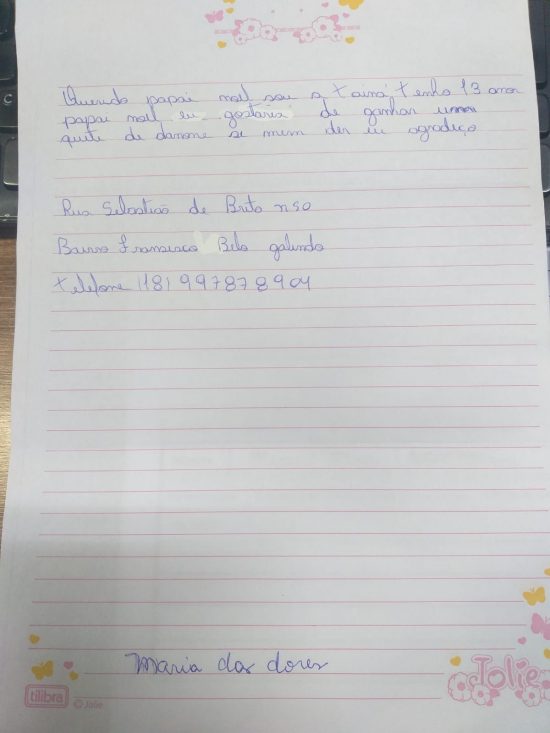 Querido papai noel sou a tainá tenho 13 anos
papai noel eu gostaria de ganhar um
quite de danone se mim der eu agradeço
Rua Sebastião de Brito n50
Bairro Francisco Belo galindo
telefone (18) 997878904
Maria das dores
tilibra
© Jolie
Jolie